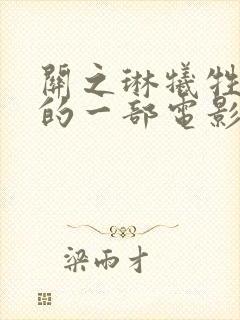 關之琳犧牲
的一部電影
梁雨才